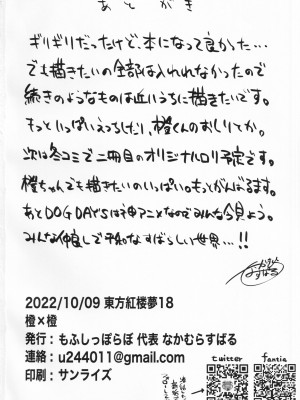 あとがき
ギリギリだったけど、本になって良かった…
でも描きたいの全部は入れれなかったので
続きのようなものは近いうちに描きたいです。
もっといっぱいえっちしたり、橙くんのおしりとか。
次は冬コミで二冊目のオリジナルロリ予定です。
橙ちゃんでも描きたいのいっぱい。もっとがんばるます。
あとDOG DAYSは神アニメなのでみんな今見よう。
みんな仲良しで平和なすばらしい世界…!!
なかむら
すばる
2022/10/09 東方紅楼夢18
橙×橙
発行：もふしっぽらぼ 代表 なかむらすばる
連絡：u244011@gmail.com
印刷：サンライズ
twitter
fantia